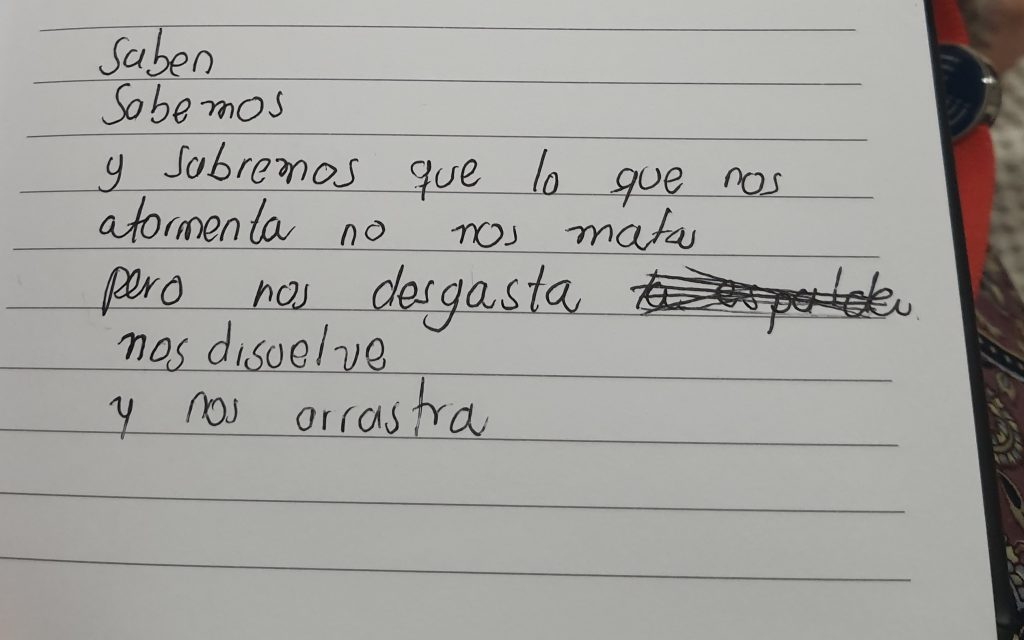 saben
Sabemos
y sabremos que lo que nos
atormenta no nos mata
pero nos desgasta la espalda
nos disuelve
y nos arrastra